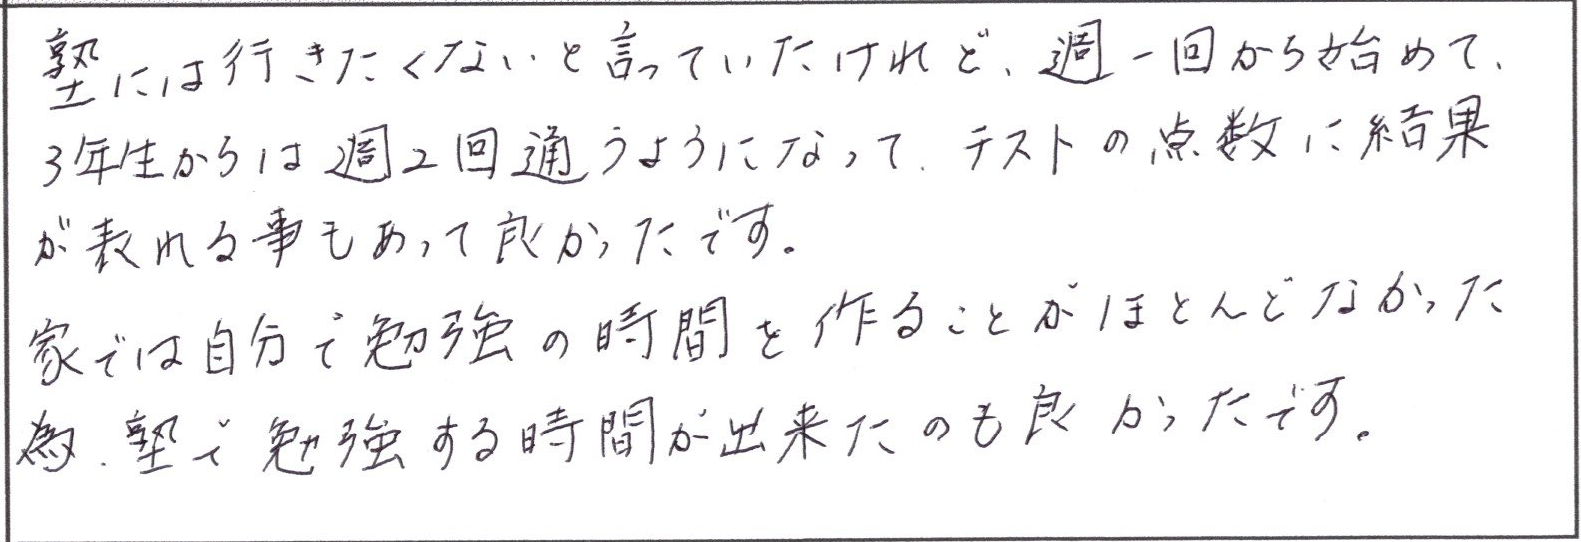 塾には行きたくないと言っていたけれど、週一回から始めて、
3年生からは週2回通うようになって、テストの点数に結果
が表れる事もあって良かったです。
家では自分で勉強の時間を作ることがほとんどなかった
為、塾で勉強する時間が出来たのも良かったです。